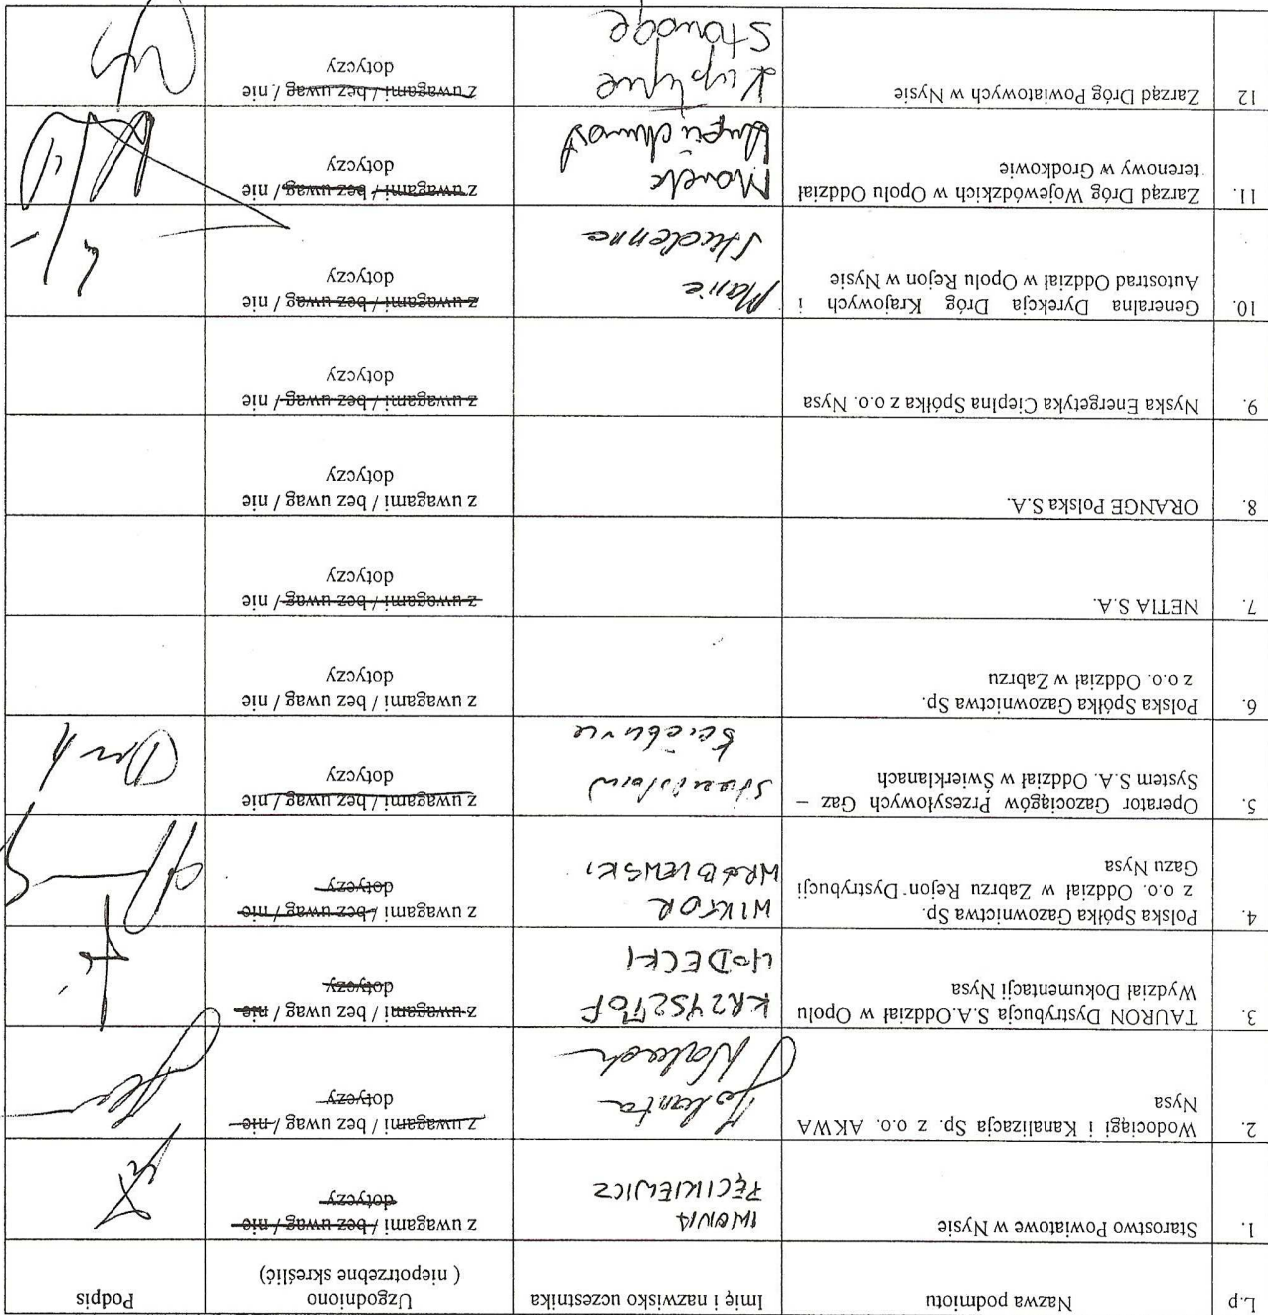 L.p
Nazwa podmiotu
Imię i nazwisko uczestnika
Uzgodniono
( niepotrzebne skreślić)
Podpis
1.
Starostwo Powiatowe w Nysie
IWONA
PĘCIKIEWICZ
z uwagami / bez uwag / nie
dotyczy
2.
Wodociągi i Kanalizacja Sp. z o.o. AKWA
Nysa
Jolanta
z uwagami / bez uwag / nie
dotyczy
3.
TAURON Dystrybucja S.A.Oddział w Opolu
Wydział Dokumentacji Nysa
KRZYSZTOF
z uwagami / bez uwag / nie
dotyczy
4.
Polska Spółka Gazownictwa Sp.
z o.o. Oddział w Zabrzu Rejon Dystrybucji
Gazu Nysa
WIKTOR
WRÓBLEWSKI
z uwagami / bez uwag / nie
dotyczy
5.
Operator Gazociągów Przesyłowych Gaz –
System S.A. Oddział w Świerklanach
Stanisław
z uwagami / bez uwag / nie
dotyczy
6.
Polska Spółka Gazownictwa Sp.
z o.o. Oddział w Zabrzu
z uwagami / bez uwag / nie
dotyczy
7.
NETIA S.A.
z uwagami / bez uwag / nie
dotyczy
8.
ORANGE Polska S.A.
z uwagami / bez uwag / nie
dotyczy
9.
Nyska Energetyka Cieplna Spółka z o.o. Nysa
z uwagami / bez uwag / nie
dotyczy
10.
Generalna Dyrekcja Dróg Krajowych i
Autostrad Oddział w Opolu Rejon w Nysie
z uwagami / bez uwag / nie
dotyczy
11.
Zarząd Dróg Wojewódzkich w Opolu Oddział
terenowy w Grodkowie
Marek
z uwagami / bez uwag / nie
dotyczy
12
Zarząd Dróg Powiatowych w Nysie
z uwagami / bez uwag / nie
dotyczy